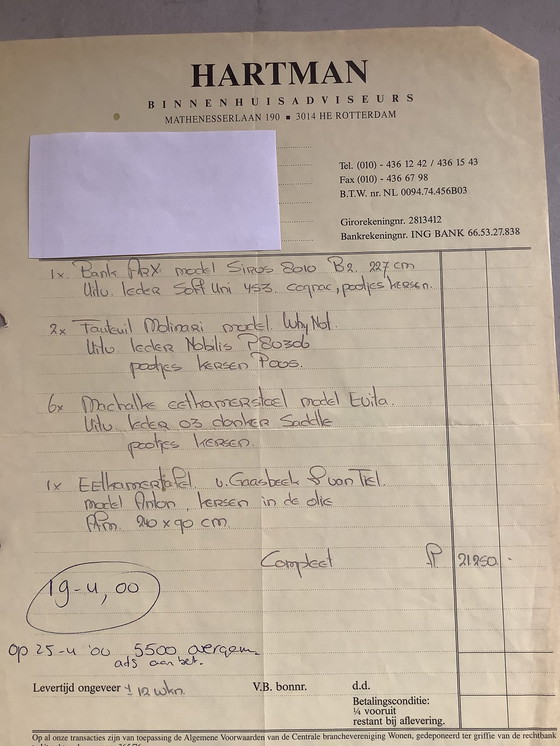 HARTMAN
BINNENHUISADVISEURS
MATHENESSERLAAN 190 ■ 3014 HE ROTTERDAM
Tel. (010) - 436 12 42 / 436 15 43
Fax (010) - 436 67 98
B.T.W. nr. NL 0094.74.456B03
Girorekeningnr. 2813412
Bankrekeningnr. ING BANK 66.53.27.838
1x Bank model 8010 B2. 227 cm
Uitv. leder Soft Uni 453. cognac, pootjes kersen.
2x Fauteuil Molinari model. Why Not.
Uitv leder Nobilis
pootjes kersen
6x Machalke eethamerstoel model Evita.
Uitv. leder 03 donker Saddle
pootjes kersen.
1x Eethamertafel. v. Gaasbeek & van Tiel.
model Anton, kersen in de olie
Afm. 240 x 90 cm.
Compleet 21250 -
19-4,00
op 25-4 '00 5500 overgem.
als aanbet.
Levertijd ongeveer ± 12 wkn. V.B. bonnr. d.d.
Betalingsconditie:
¼ vooruit
restant bij aflevering.
Op al onze transacties zijn van toepassing de Algemene Voorwaarden van de Centrale branchevereniging Wonen, gedeponeerd ter griffie van de rechtbank